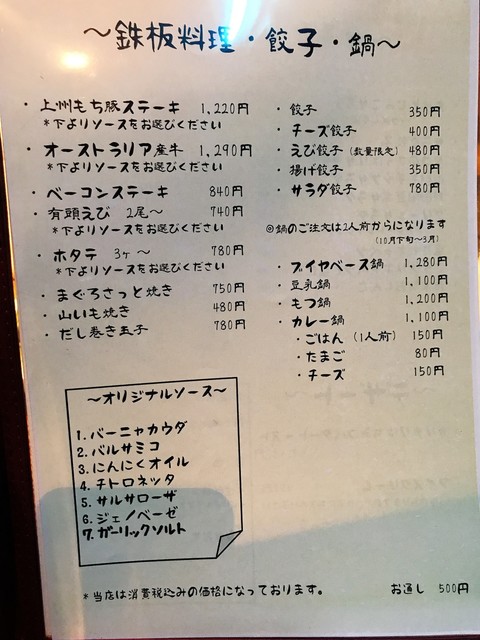 ～鉄板料理・餃子・鍋～
・上州もち豚ステーキ 1,220円
＊下よりソースをお選びください
・オーストラリア産牛 1,290円
＊下よりソースをお選びください
・ベーコンステーキ 840円
・有頭えび 2尾～ 740円
＊下よりソースをお選びください
・ホタテ 3ヶ～ 780円
＊下よりソースをお選びください
・まぐろさっと焼き 750円
・山いも焼き 480円
・だし巻き玉子 780円
・餃子 350円
・チーズ餃子 400円
・えび餃子（数量限定） 480円
・揚げ餃子 350円
・サラダ餃子 780円
◎鍋のご注文は2人前からになります
（10月下旬～3月）
・ブイヤベース鍋 1,280円
・豆乳鍋 1,100円
・もつ鍋 1,200円
・カレー鍋 1,100円
・ごはん（1人前） 150円
・たまご 80円
・チーズ 150円
～オリジナルソース～
1. バーニャカウダ
2. バルサミコ
3. にんにくオイル
4. チトロネッタ
5. サルサローザ
6. ジェノベーゼ
7. ガーリックソルト
＊当店は消費税込みの価格になっております。 お通し 500円